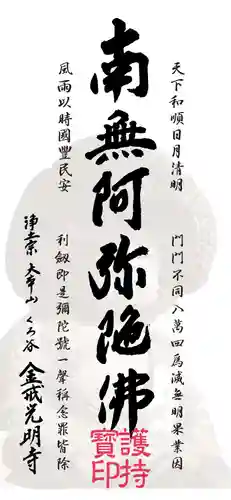 天下和順日月清明
門門不同八萬四爲滅無明果業因
南無阿弥陀佛
風雨以時國豐民安
利劔即是彌陀號一聲稱念罪皆除
浄土宗 大本山 くろ谷 金戒光明寺
護持
寶印